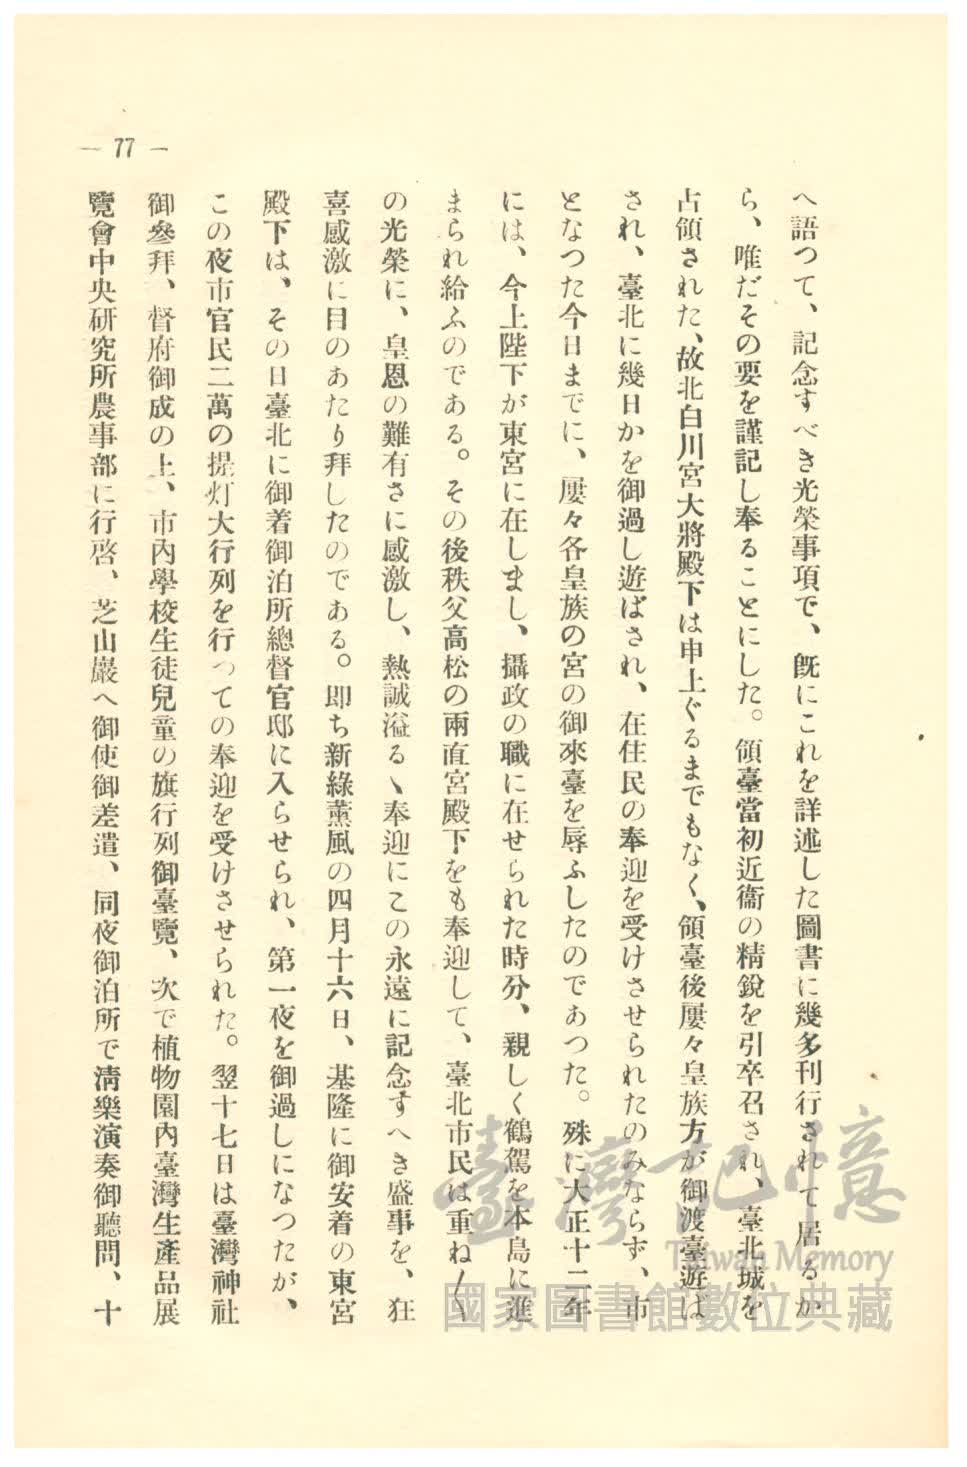 — 77 —
へ語つて、記念すべき光榮事項で、旣にこれを詳述した圖書に幾多刊行されて居るか
ら、唯だその要を謹記し奉ることにした。領臺當初近衞の精銳を引卒召され、臺北城を
占領された、故北白川宮大將殿下は申上ぐるまでもなく、領臺後屢々皇族方が御渡臺遊ば
され、臺北に幾日かを御過し遊ばされ、在住民の奉迎を受けさせられたのみならず、市
となつた今日までに、屢々各皇族の宮の御來臺を辱ふしたのであつた。殊に大正十二年
には、今上陛下が東宮に在しまし、攝政の職に在せられた時分、親しく鶴駕を本島に進
まられ給ふのである。その後秩父高松の兩直宮殿下をも奉迎して、臺北市民は重ね〱
の光榮に、皇恩の難有さに感激し、熱誠溢るゝ奉迎にこの永遠に記念すへき盛事を、狂
喜感激に目のあたり拜したのである。卽ち新綠薰風の四月十六日、基隆に御安着の東宮
殿下は、その日臺北に御着御泊所總督官邸に入らせられ、第一夜を御過しになつたが、
この夜市官民二萬の提灯大行列を行つての奉迎を受けさせられた。翌十七日は臺灣神社
御參拜、督府御成の上、市內學校生徒兒童の旗行列御臺覽、次で植物園內臺灣生產品展
覽會中央硏究所農事部に行啓、芝山巖へ御使御差遣、同夜御泊所で淸樂演奏御聽問、十
臺灣記憶
Taiwan Memory
國家圖書館數位典藏